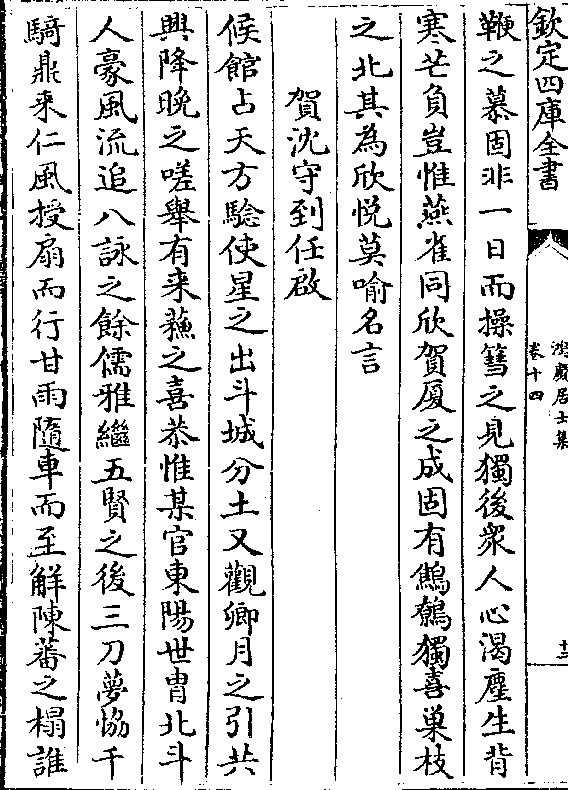 欽定四庫全書
鴻慶居士集
卷十四
十三
鞭之慕固非一日而操篲之見獨後衆人心渴塵生背
寒芒負豈惟燕雀同欣賀厦之成固有鷦鷯獨喜巢枝
之北其為欣悦莫喻名言
賀沈守到任啟
候館占天方驗使星之出斗城分土又觀卿月之引共
興降晚之嗟舉有来蘓之喜恭惟某官東陽世胄北斗
人豪風流追八詠之餘儒雅繼五賢之後三刀夢恊千
騎鼎来仁風授扇而行甘雨隨車而至解陳蕃之榻誰